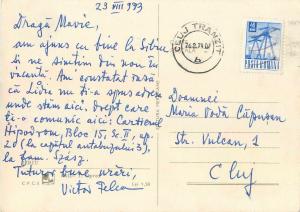 23 VIII 973
Dragă Marie,
am ajuns cu bine la Sibiu
și ne simțim din nou în
vacanță. Am constatat rasă
că Lidia nu ți-a spus adresa
unde stăm aici, drept care
ți-o comunic aici: Cartierul
Hipodrom, Bloc 15, Sc II, ap.
20 (la capătul autobuzului 3),
la fam. Szász.
Tuturor bune urări,
Victor Felea
C.P.C.S.
Lei 1,50
CLUJ TRANZIT
6
POSTA ROMANA
Doamnei
Maria Vodă Căpușan
Str. Vulcan, 1
Cluj